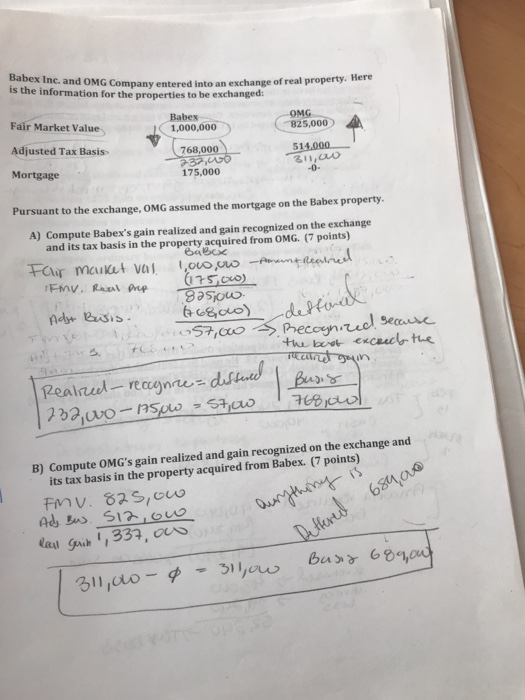 Babex Inc. and OMG Company entered into an exchange of real property. Here
is the information for the properties to be exchanged:
Babex OMG
Fair Market Value 1,000,000 825,000
Adjusted Tax Basis 768,000 514,000
232,000 311,000
Mortgage 175,000 -0-
Pursuant to the exchange, OMG assumed the mortgage on the Babex property.
A) Compute Babex's gain realized and gain recognized on the exchange
and its tax basis in the property acquired from OMG. (7 points)
Babex
Fair market val 1,000,000 - Amount Realized
FMV. Real Prop (175,000)
825,000
Adj. Basis. (768,000) deffered
57,000 → Recognized. because
the boot exceeds the
realized gain.
Realized - recognize = deffered Basis
232,000 - 175,000 = 57,000 768,000
B) Compute OMG's gain realized and gain recognized on the exchange and
its tax basis in the property acquired from Babex. (7 points)
FMV. 825,000 everything is
Adj Bas. 512,000 Deffered 689,000
Real gain 1,337,000
311,000 - ϕ = 311,000 Basis 689,000